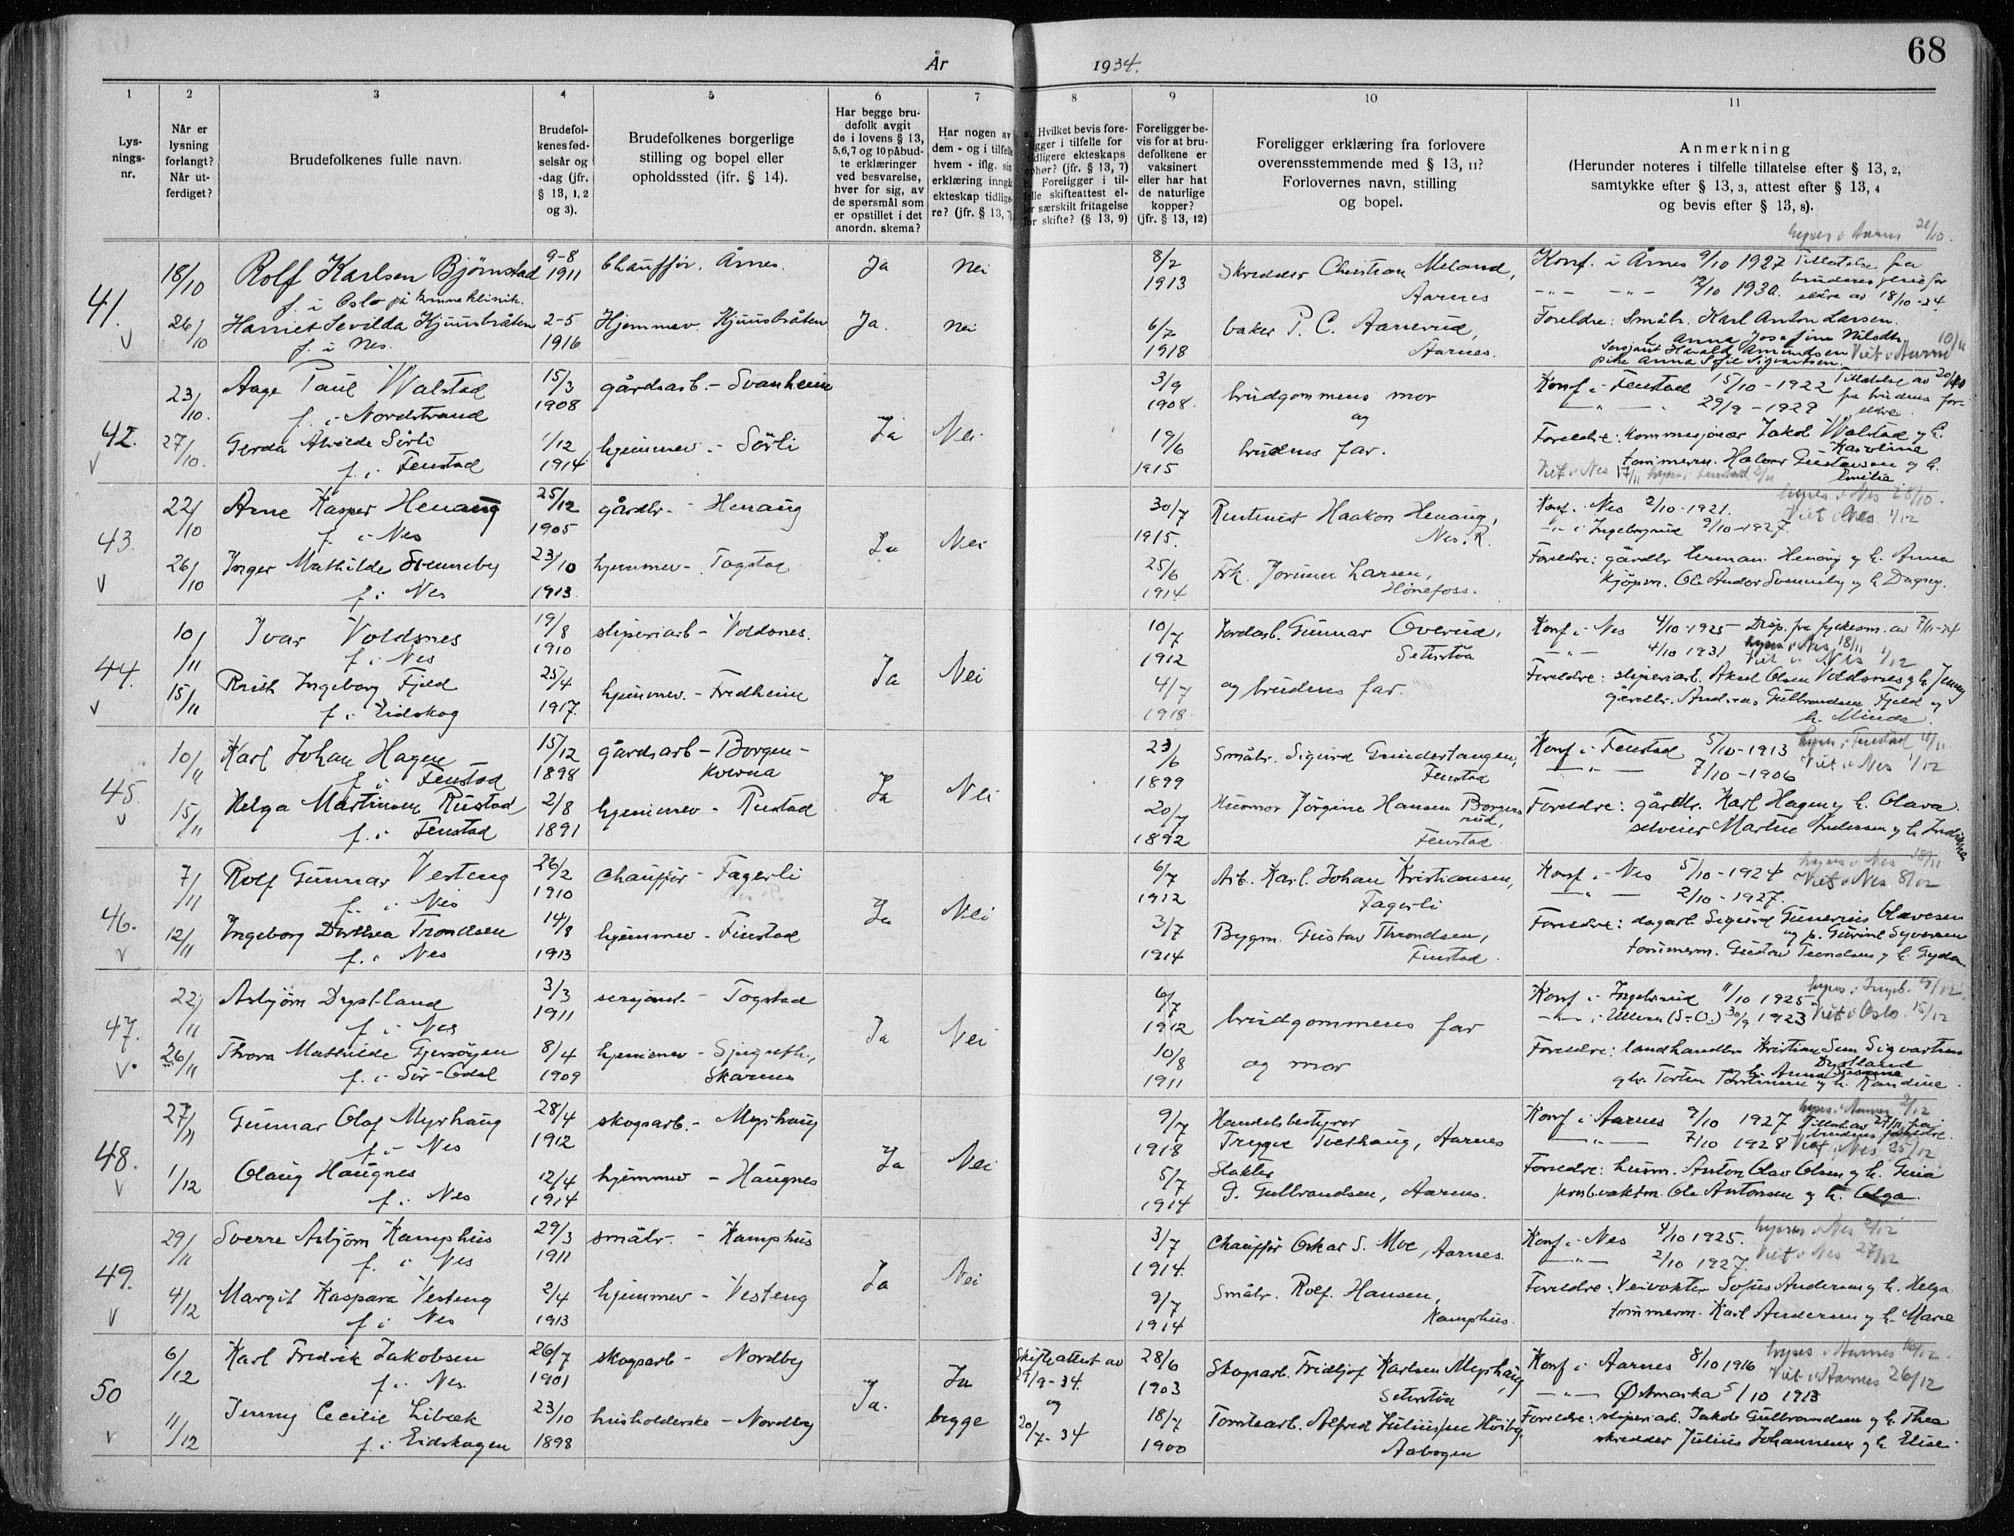 68
År 1934.
1 2 3 4 5 6 7 8 9 10 11
Lysningsnr.
Når er lysning forlangt? Når utferdiget?
Brudefolkenes fulle navn.
Brudefolkenes fødselsår og -dag (jfr. § 13, 1, 2 og 3).
Brudefolkenes borgerlige stilling og bopel eller opholdssted (jfr. § 14).
Har begge brudefolk avgit de i lovens § 13, 5, 6, 7 og 10 påbudte erklæringer ved besvarelse, hver for sig, av de spørsmål som er opstillet i det anordn. skema?
Har nogen av dem - og i tilfelle hvem - iflg. sin erklæring inngått ekteskap tidligere? (jfr. § 13, 7)
Hvilket bevis foreligger i tilfelle for tidligere ekteskaps ophør? (jfr. § 13, 7) Foreligger i tilfelle skifteattest eller særskilt fritagelse for skifte? (§ 13, 9)
Foreligger bevis for at brudefolkene er vaksinert eller har hat de naturlige kopper? (jfr. § 13, 12)
Foreligger erklæring fra forlovere overensstemmende med § 13, 11? Forlovernes navn, stilling og bopel.
Anmerkning (Herunder noteres i tilfelle tillatelse efter § 13, 2, samtykke efter § 13, 3, attest efter § 13, 4 og bevis efter § 13, 8).
lyses i Aarnes 21/10.
41. 18/10 Rolf Karlsen Bjørnstad 9-8 1911 Chauffør, Årnes. Ja Nei 8/7 1913 Skredder Christian Meland, Aarnes Konf. i Årnes 9/10 1927 Tillatelse fra
f. i Oslo på kvinneklinik. 12/10 1930. brudens foreldre av 18/10-34.
26/10 Harriet Sevilda Kjuusbråten 2-5 1916 Hjemmev. Kjuusbråten Ja. nei 6/7 1918 baker P. C. Aarnrud, Aarnes. Foreldre: Småbr. Karl Anton Larsen
f. i Nes. Anna Josefine
Sersjant Harald Amundsen Viet i Aarnes 10/11
pike Anna Sofie Sigvartsen
42. 23/10. Aage Paul Walstad 15/3 1908 gårdsarb. - Svanheim Ja Nei 3/9 1908. brudgommens mor Konf i Fenstad 15/10-1922 Tillatelse av 20/10
f. i Nordstrand og 29/9-1929 fra brudens foreldre.
27/10. Gerda Alvilde Sörli 1/12 1914 hjemmev. - Sörli 19/6 1915 brudens far. Foreldre: Kommisjonær Jakob Walstad og h. Karoline
f. i Fenstad tømmerm. Halvor Gustavsen og h. Emilie.
Viet i Nes 17/11 lyses i Fenstad
43. 22/10 Arne Kasper Henaug 25/12 1905 gårdbr. - Henaug Ja Nei 30/7 1915. Rentenist Haakon Henaug, Nes, R. Konf. i Nes 2/10-1921. lyses i Nes 28/10. Viet i Nes 1/12
f. i Nes i Ingeborgrud 9/10-1927.
26/10 Inger Mathilde Svenneby 23/10 1913. hjemmev - Togstad 25/6 1914 Frk. Jorunn Larsen, Hönefoss. Foreldre: gårdbr Herman Henaug og h. Anna
f. i Nes kjöpm. Ole Andor Svenneby og h. Dagny.
44. 10/11 Ivar Voldsnes 19/8 1910 sliperiarb - Voldsnes. Ja Nei 10/7 1912 Jordarb. Gunnar Overud, Seterstöa Konf i Nes 4/10-1925 Disp. fra fylkesm. av 7/11-34
f. i Nes 4/10 1931 lyses i Nes 18/11 Viet i Nes 1/12
15/11 Ruth Ingeborg Fjeld 25/4 1917. hjemmev. - Fredheim 4/7 1918. og brudens far. Foreldre: sliperiarb. Aksel Olsen Voldsnes og h. Jenny
f. i Eidskog gårdbr. Andreas Gulbrandsen Fjeld og h. Minda.
45. 10/11 Karl Johan Hagen 15/12 1898 gårdsarb - Borgen-kverna Ja Nei 23/6 1899 Småbr. Sigurd Grinderstangen, Fenstad Konf i Fenstad 5/10-1913 lyses i Fenstad 18/11
f. i Fenstad 7/10-1906 Viet i Nes 1/12
15/11 Helga Martinsen Rustad 2/8 1891 hjemmev - Rustad 20/7 1892 Husmor Jörgine Hansen Borgerud, Fenstad Foreldre: gårdbr. Karl Hagen og h. Olava.
f. i Fenstad selveier Martin Andersen og h.
46. 7/11 Rolf Gunnar Vesteng 26/2 1910 Chauffør - Fagerli Ja Nei 6/7 1912 Arb. Karl Johan Kristiansen, Fagerli Konf i Nes 5/10-1924 lyses i Nes 18/11 Viet i Nes 8/12
f. i Nes 2/10-1927.
12/11 Ingeborg Dorthea Trondsen 14/8 1913 hjemmev - Finstad 3/7 1914 Bygm. Gustav Throndsen, Finstad. Foreldre: dagarb. Sigurd Gunerius Olavesen
f. i Nes og p. Gurine Syversen
tømmerm. Gustav Trondsen og h. Gyda
47. 22/11 Asbjörn Dystland 3/3 1911 sersjant - Togstad Ja Nei 6/7 1912 brudgommens far Konf i Ingeborgrud 11/10 1925 lyses i Ingeb. 9/12.
f. i Nes i Ullern (S-O.) 30/9 1923 Viet i Oslo. 15/12
26/11 Thora Mathilde 8/4 1909 hjemmev - Sjugurth., Skarnes 10/8 1911 og mor Foreldre: landhandler Kristian Sem Sigvartsen Dystland
f. i Sör-Odal gbr. Torsten Torstensen og h. Randine
48. 27/11 Gunnar Olaf Myrhaug 28/4 1912 skogsarb. - Myrhaug Ja Nei 9/7 1918 Handelsbestyrer Trygve Tvethaug, Aarnes Konf i Aarnes 9/10 1927 lyses i Aarnes 9/12 Tillat. av 27/11 fra
f. i Nes 7/10 1928 brudens foreldre. Viet i Nes 25/12
1/12 Olaug Haugnes 12/4 1914 hjemmev - Haugnes 5/7 1914 Slakter G. Gulbrandsen, Aarnes. Foreldre: husm. Anton Olav Olsen og h. Gina
f. i Nes Ole Antonsen og h. Olga.
49. 29/11 Sverre Asbjörn Kamphus 29/3 1911 småbr. - Kamphus Ja Nei 3/7 1914. Chauffør Oskar S. Moe, Aarnes. Konf i Nes 4/10 1925. lyses i Nes 9/12
f. i Nes 2/10 1927. Viet i Nes 27/12
4/12 Margit Kaspara Vesteng 2/4 1913 hjemmev - Vesteng 9/7 1914 Småbr. Rolf Hansen, Kamphus. Foreldre: Veivokter Sofus Andersen og h. Helga
f. i Nes tømmerm. Karl Andersen og h. Marie
50 6/12 Karl Fredrik Jakobsen 26/7 1901 skogsarb - Nordby Ja. Ja begge Skifteattest av 29/9-34. og 20/7-34 28/6 1903 Skogsarb. Fridtjof Karlsen Myrhaug, Seterstöa Konf i Aarnes 8/10 1916 lyses i Aarnes 16/12.
f. i Nes. Østmarka 5/10 1913 Viet i Aarnes 26/12
11/12 Jenny Cecilie Libæk 23/10 1898 husholderske - Nordby 18/7 1900 Tomtearb. Alfred Juliussen Höiby, Aabogen Foreldre: sliperiarb. Jakob Gulbrandsen og h. Thea
f. i Eidskogen skredder Julius Johannesen og h. Elise.